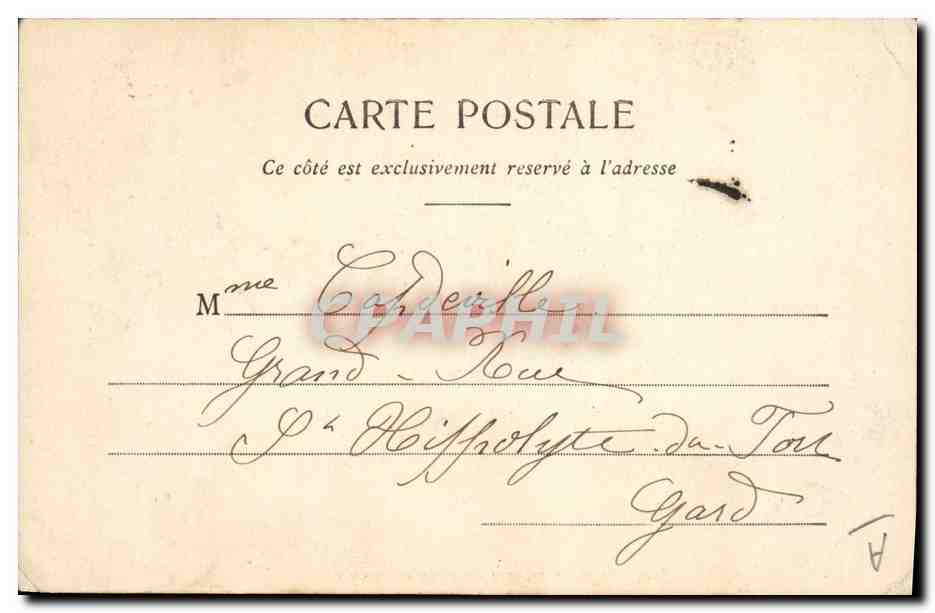 CARTE POSTALE
Ce côté est exclusivement reservé à l'adresse
Mme Capdeville
CPAPHIL
Grand-Rue
St Hippolyte-du-Fort
Gard
A